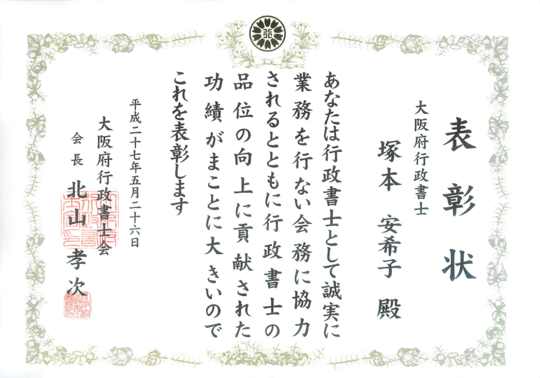 表彰状
大阪府行政書士
塚本 安希子 殿
あなたは行政書士として誠実に
業務を行ない会務に協力
されるとともに行政書士の
品位の向上に貢献された
功績がまことに大きいので
これを表彰します
平成二十七年五月二十六日
大阪府行政書士会
会長 北山 孝次